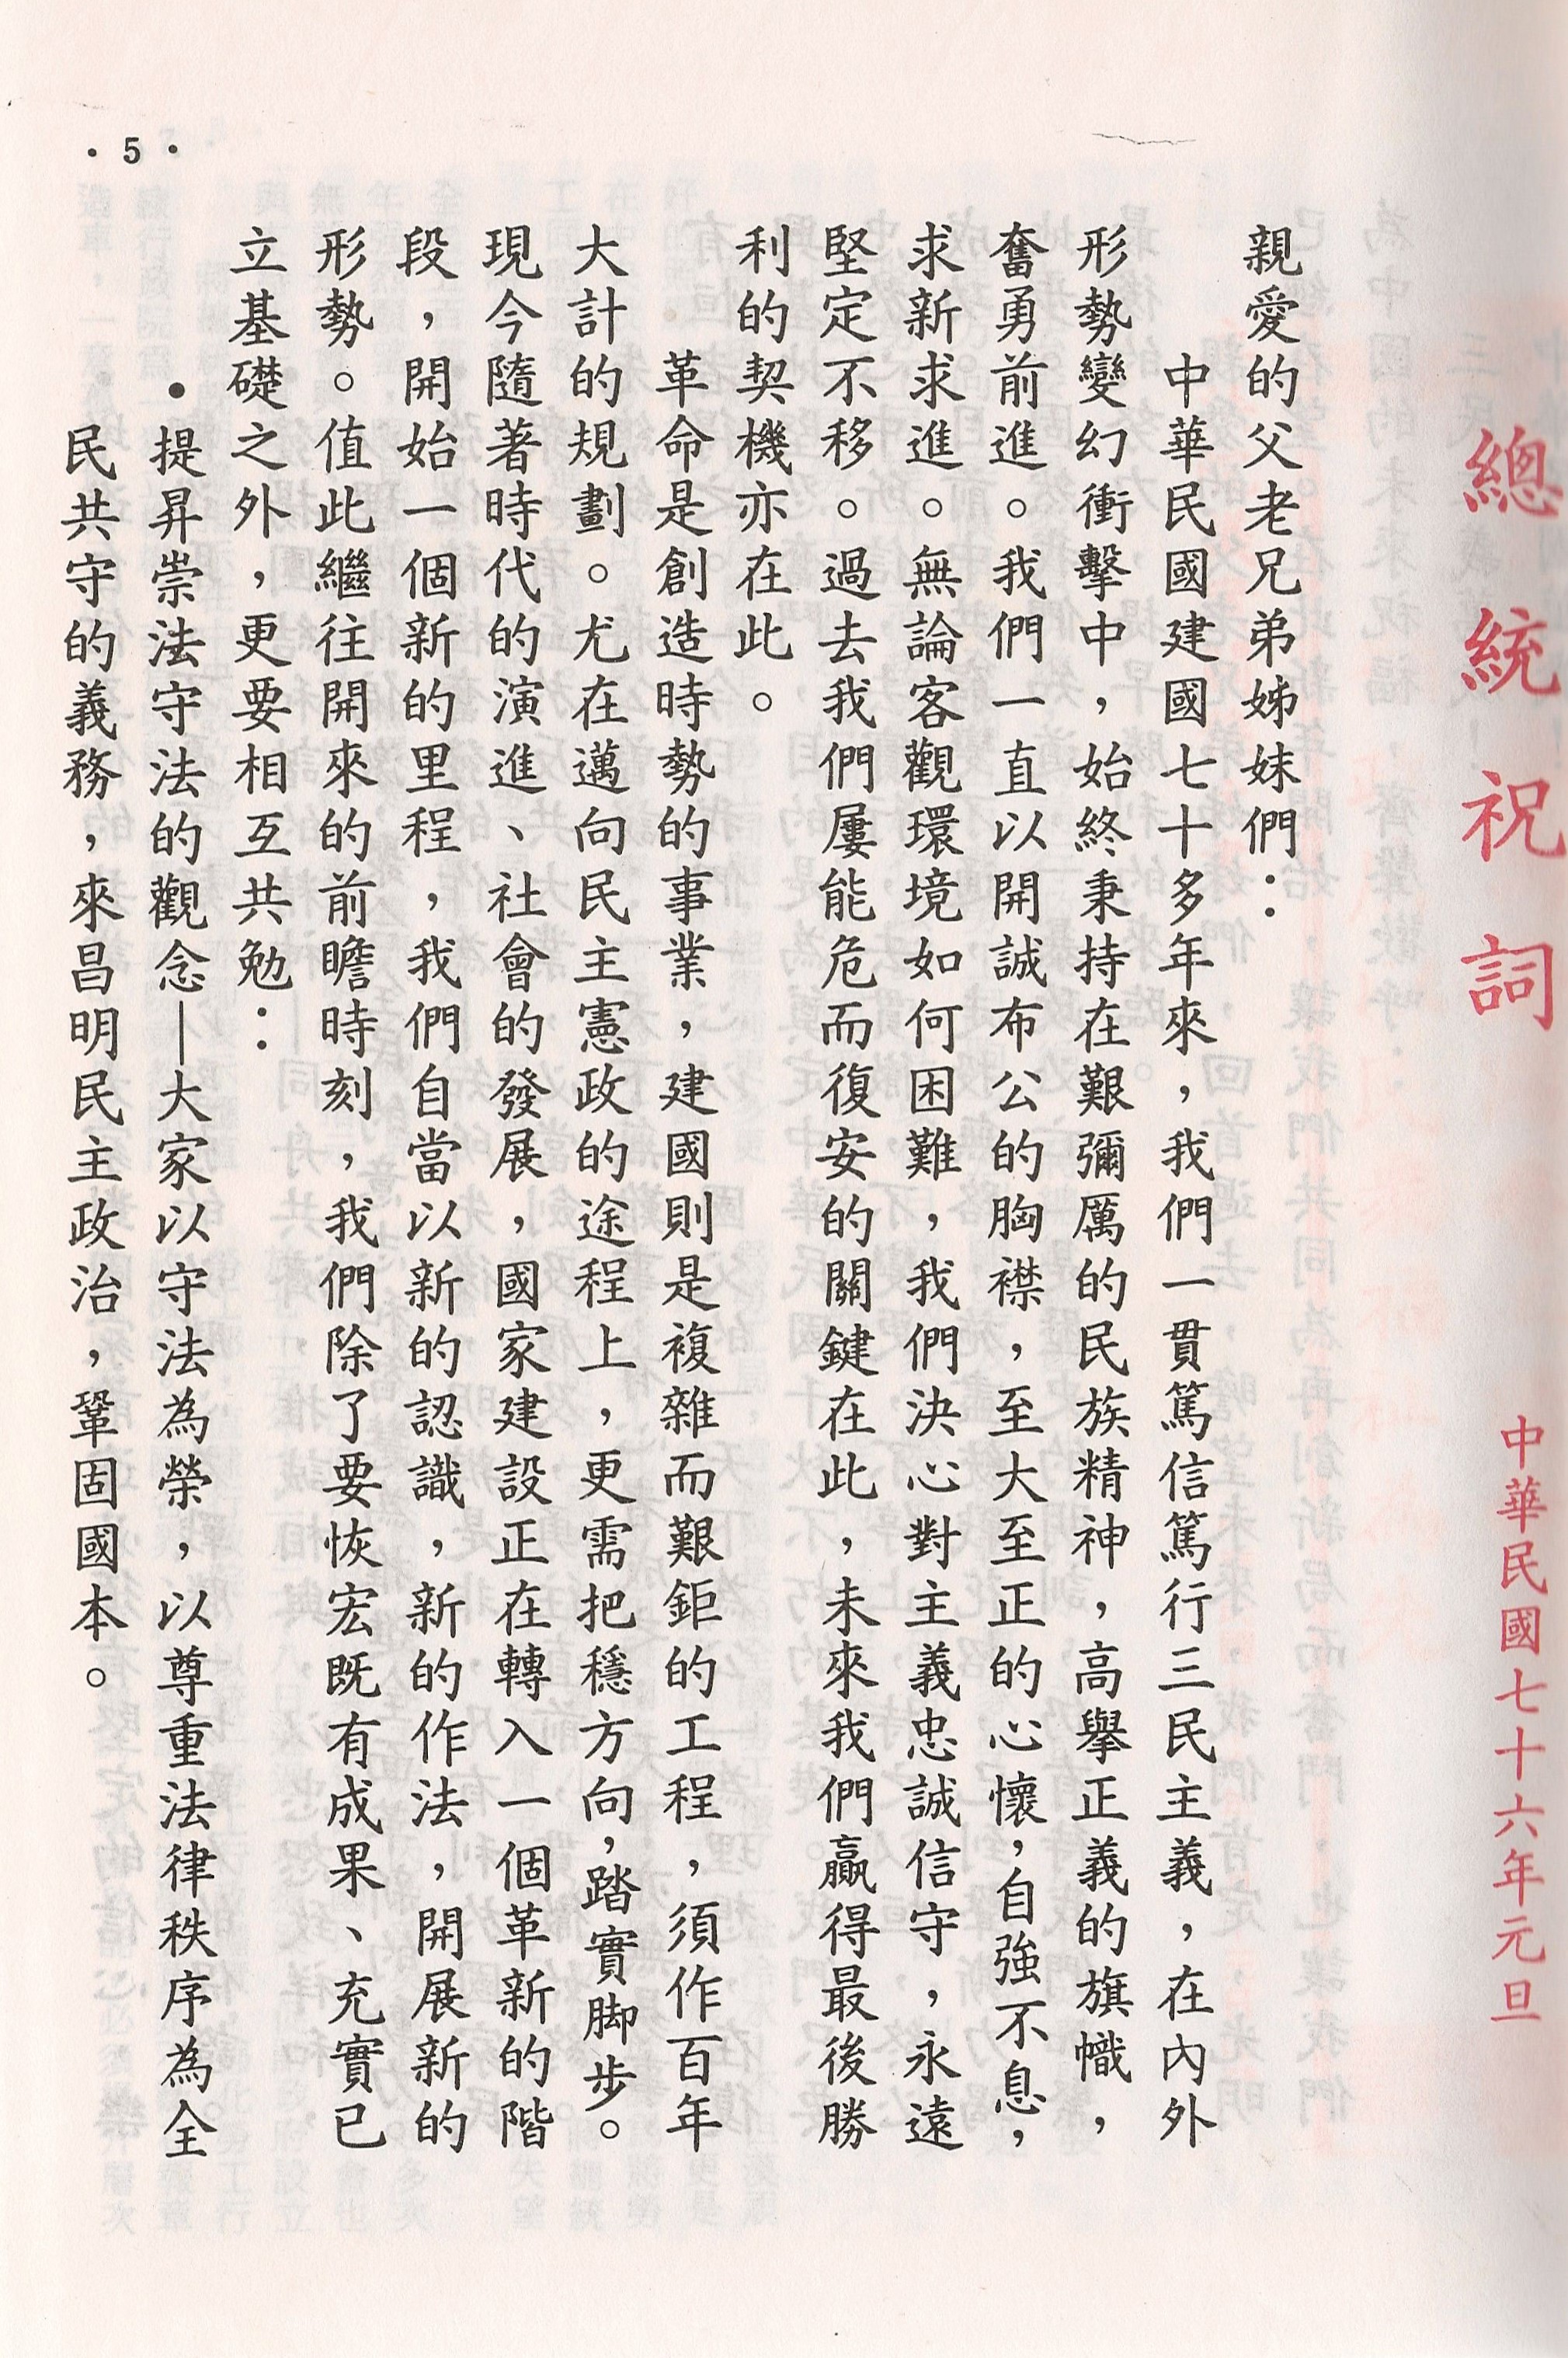 總統祝詞
中華民國七十六年元旦
親愛的父老兄弟姊妹們：
中華民國建國七十多年來，我們一貫篤信篤行三民主義，在內外
形勢變幻衝擊中，始終秉持在艱彌厲的民族精神，高舉正義的旗幟，
奮勇前進。我們一直以開誠布公的胸襟，至大至正的心懷，自強不息，
求新求進。無論客觀環境如何困難，我們決心對主義忠誠信守，永遠
堅定不移。過去我們屢能危而復安的關鍵在此，未來我們贏得最後勝
利的契機亦在此。
革命是創造時勢的事業，建國則是複雜而艱鉅的工程，須作百年
大計的規劃。尤在邁向民主憲政的途程上，更需把穩方向，踏實脚步。
現今隨著時代的演進、社會的發展，國家建設正在轉入一個革新的階
段，開始一個新的里程，我們自當以新的認識，新的作法，開展新的
形勢。值此繼往開來的前瞻時刻，我們除了要恢宏既有成果、充實已
立基礎之外，更要相互共勉：
•提昇崇法守法的觀念—大家以守法為榮，以尊重法律秩序為全
民共守的義務，來昌明民主政治，鞏固國本。
• 5 •